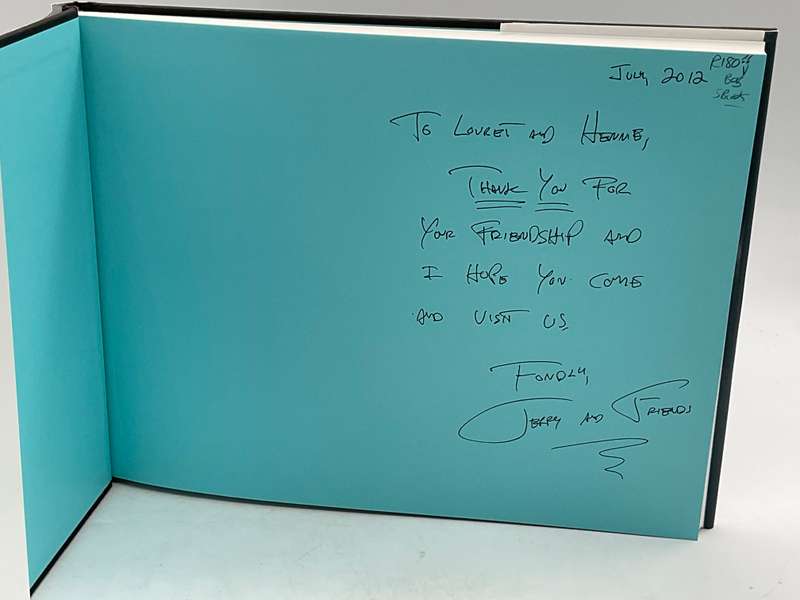 July 2012
R180
To Louret and Hennie,
Thank You For
Your Friendship and
I Hope You Come
and Visit Us
Fondly,
Jerry and Friends